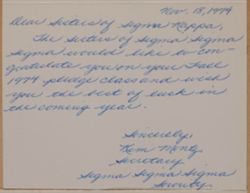 Nov. 18, 1974
Dear Sisters of Sigma Kappa,
The Sisters of Sigma Sigma
Sigma would like to con-
gratulate you on your Fall
1974 pledge class and wish
you the best of luck in
the coming year.
Sincerely,
Kim Montz
Secretary
Sigma Sigma Sigma
Sorority